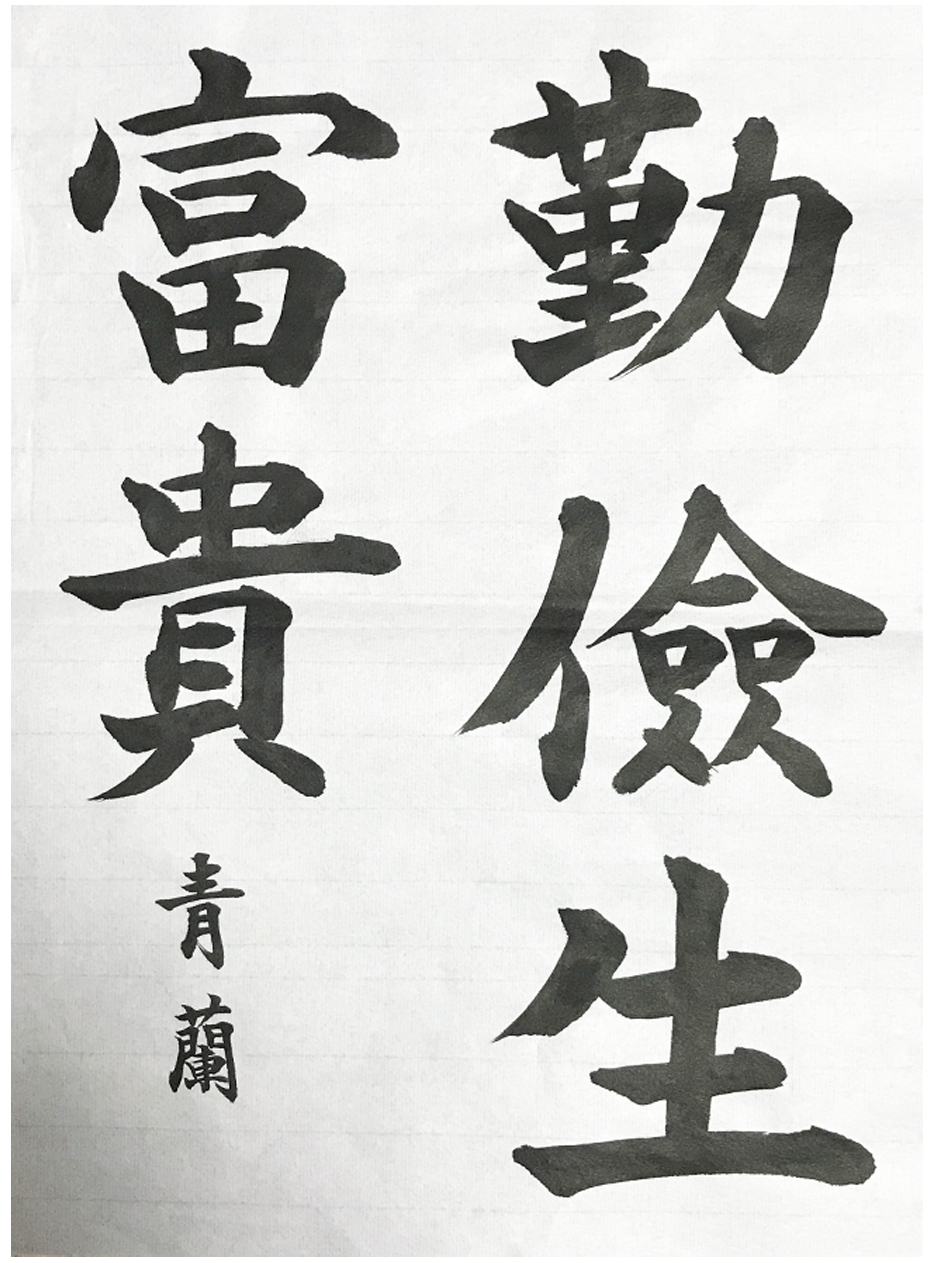 勤儉生
富貴
青蘭